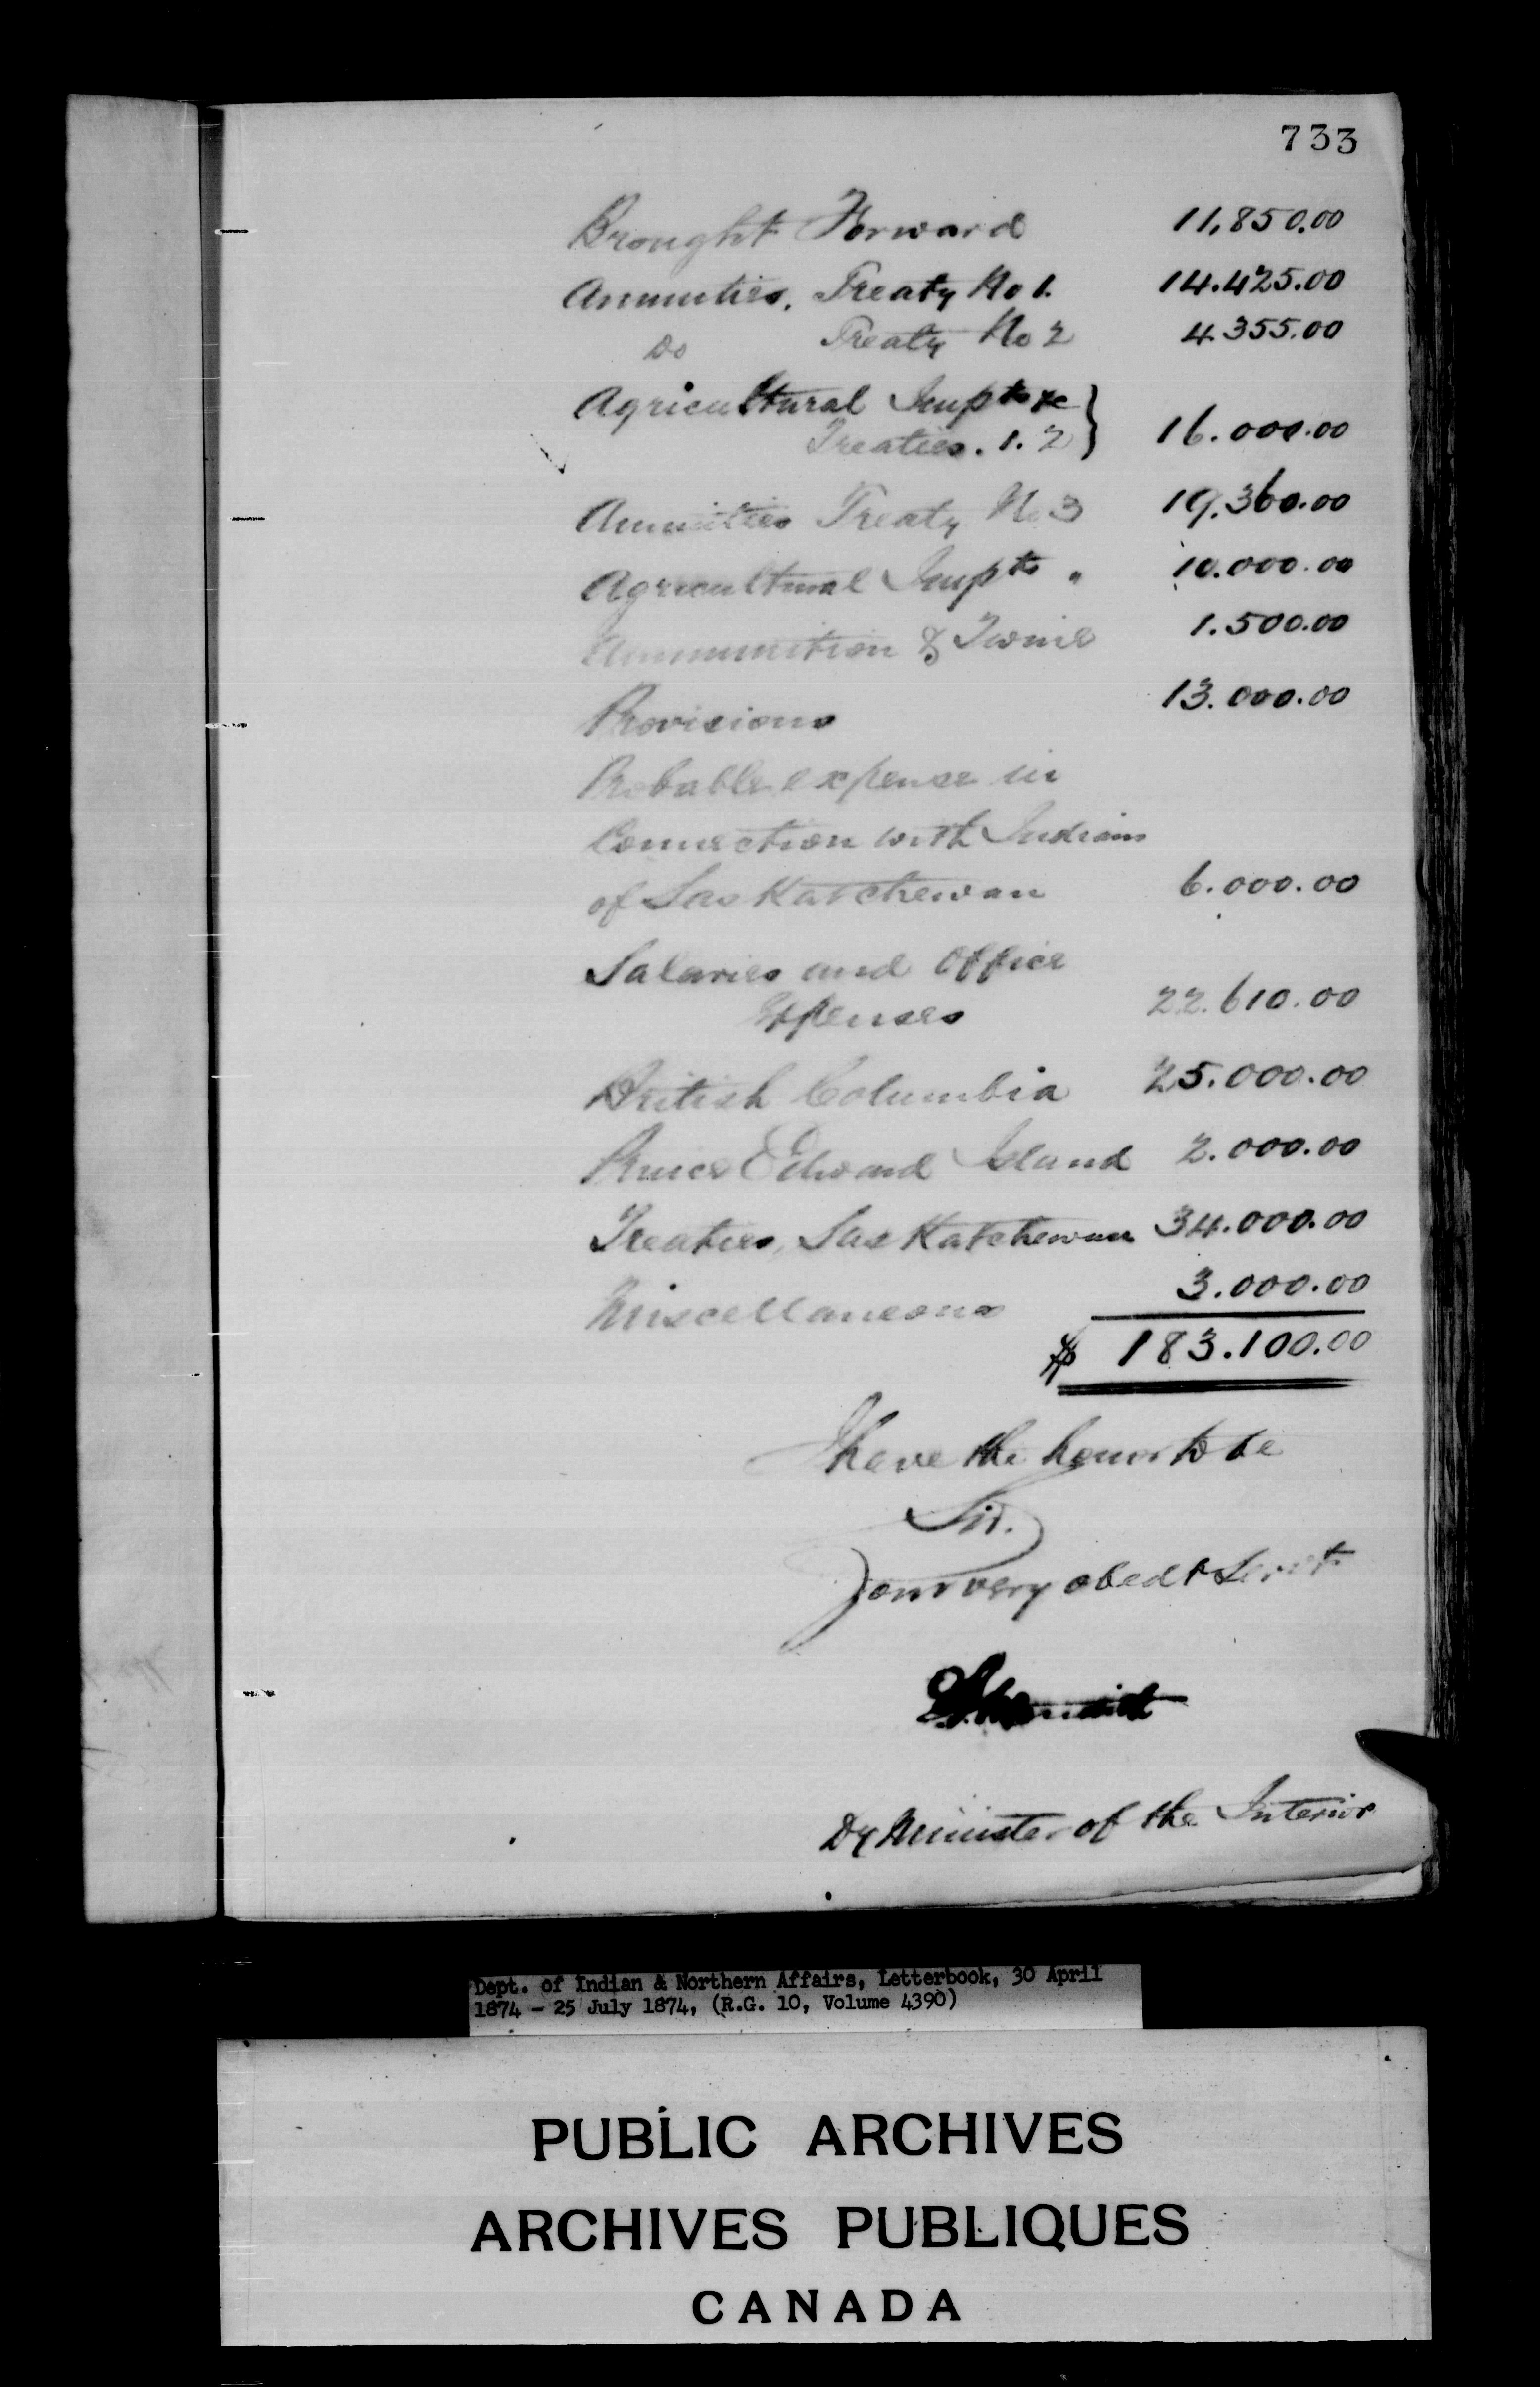 733
Brought Forward 11,850.00
Annuities, Treaty No 1. 14.425.00
Do Treaty No 2 4.355.00
Agricultural Impts &c
Treaties. 1. 2 } 16.000.00
Annuities Treaty No 3 19.360.00
Agricultural Impts " 10.000.00
Ammunition & Twine 1.500.00
Provisions 13.000.00
Probable expense in
Connection with Indians
of Saskatchewan 6.000.00
Salaries and Office
Expenses 22.610.00
British Columbia 25.000.00
Prince Edward Island 2.000.00
Treaties, Saskatchewan 34.000.00
Miscellaneous 3.000.00
$ 183.100.00
I have the honor to be
Sir.
Your very obedt Servt
Dy Minister of the Interior
Dept. of Indian & Northern Affairs, Letterbook, 30 April
1874 - 25 July 1874, (R.G. 10, Volume 4390)
PUBLIC ARCHIVES
ARCHIVES PUBLIQUES
CANADA